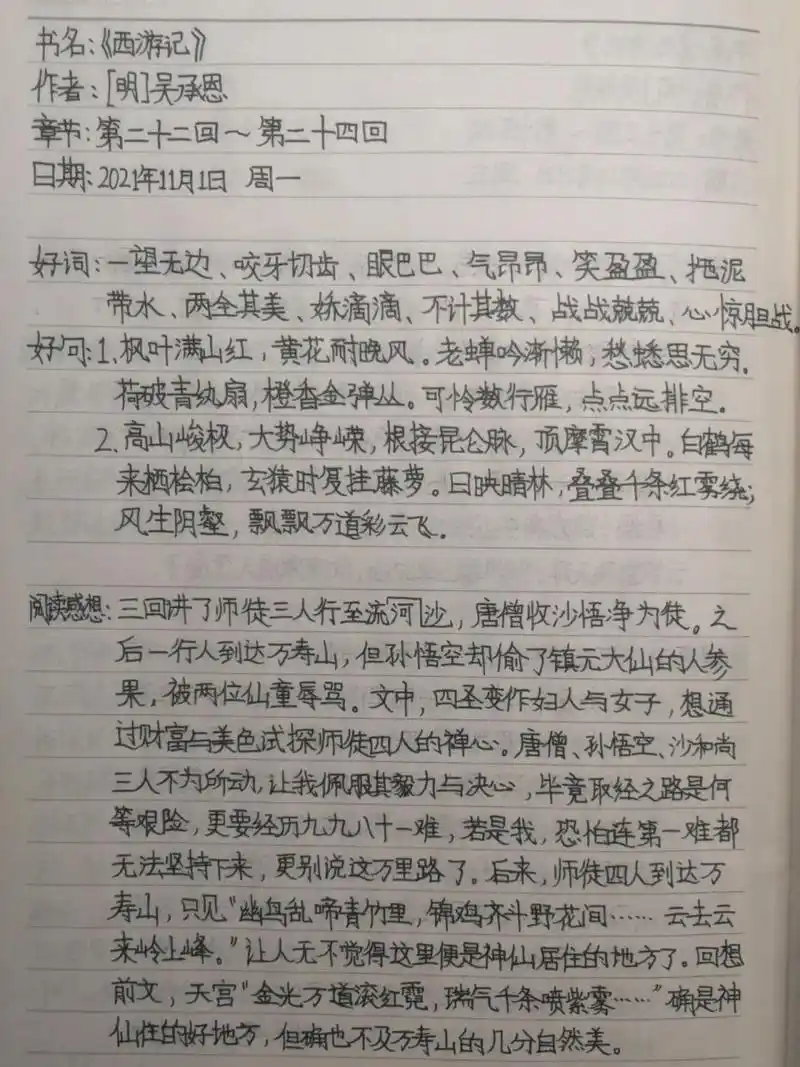 书名:《西游记》
作者:[明]吴承恩
章节:第二十二回～第二十四回
日期:2021年11月1日 周一
好词:一望无边、咬牙切齿、眼巴巴、气昂昂、笑盈盈、拖泥
带水、两全其美、娇滴滴、不计其数、战战兢兢、心惊胆战。
好句:1.枫叶满山红,黄花耐晚风。老蝉吟渐懒,愁蟋思无穷。
荷破青纨扇,橙香金弹丛。可怜数行雁,点点远排空。
2.高山峻极,大势峥嵘,根接昆仑脉,顶摩霄汉中。白鹤每
来栖桧柏,玄猿时复挂藤萝。日映晴林,叠叠千条红雾绕;
风生阴壑,飘飘万道彩云飞。
阅读感想:三回讲了师徒三人行至流河沙,唐僧收沙悟净为徒。之
后一行人到达万寿山,但孙悟空却偷了镇元大仙的人参
果,被两位仙童辱骂。文中,四圣变作妇人与女子,想通
过财富与美色试探师徒四人的禅心。唐僧、孙悟空、沙和尚
三人不为所动,让我佩服其毅力与决心,毕竟取经之路是何
等艰险,更要经历九九八十一难,若是我,恐怕连第一难都
无法坚持下来,更别说这万里路了。后来,师徒四人到达万
寿山,只见“幽鸟乱啼青竹里,锦鸡齐斗野花间……云去云
来岭上峰。”让人无不觉得这里便是神仙居住的地方了。回想
前文,天宫“金光万道滚红霓,瑞气千条喷紫雾……”确是神
仙住的好地方,但确也不及万寿山的几分自然美。